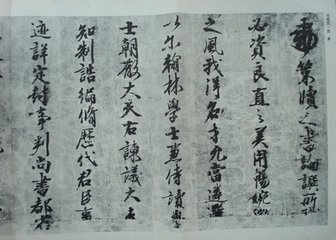 策牘之書論譔所推
資良直之美用
之風我得名才允當遴選
以尔翰林學士兼侍讀學
士朝散大夫右諫議大夫
知制誥編脩歷代君臣事
迹詳定封事判尚書都省